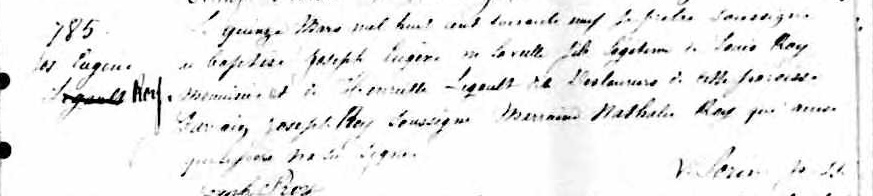 785
Jos Eugene
Legault Roy.
Le quinze Mars mil huit cent soixante neuf je prêtre soussigné
ai baptisé Joseph Eugène né la veille fils légitime de Louis Roy
menuisier et de Henriette Legault dit Deslauriers de cette paroisse
Parrain Joseph Roy soussigné Marraine Nathalie Roy qui ainsi
que le père n'a su signer
Joseph Roy